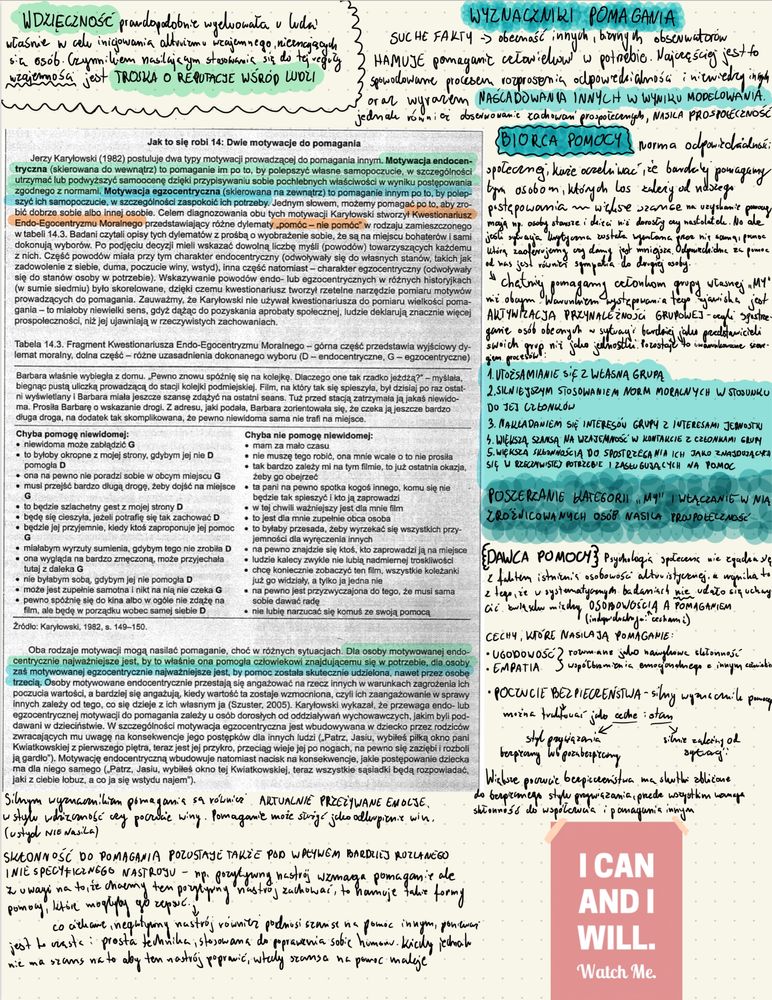 WDZIĘCZNOŚĆ prawdopodobnie wyewoluowała u ludzi
właśnie w celu inicjowania altruizmu wzajemnego, nieznających
się osób. Czynnikiem nasilającym stosowanie się do tej reguły
wzajemności jest TROSKA O REPUTACJĘ WŚRÓD LUDZI
WYZNACZNIKI POMAGANIA
SUCHE FAKTY → obecność innych, biernych obserwatorów
HAMUJE pomaganie człowiekowi w potrzebie. Najczęściej jest to
spowodowane procesem rozproszenia odpowiedzialności i niewiedzy innych
oraz wyrazem NAŚLADOWANIA INNYCH W WYNIKU MODELOWANIA.
jednak również obserwowanie zachowań prospołecznych, NASILA PROSPOŁECZNOŚĆ
Jak to się robi 14: Dwie motywacje do pomagania
Jerzy Karyłowski (1982) postuluje dwa typy motywacji prowadzącej do pomagania innym. Motywacja endocen-
tryczna (skierowana do wewnątrz) to pomaganie im po to, by polepszyć własne samopoczucie, w szczególności
utrzymać lub podwyższyć samoocenę dzięki przypisywaniu sobie pochlebnych właściwości w wyniku postępowania
zgodnego z normami. Motywacja egzocentryczna (skierowana na zewnątrz) to pomaganie innym po to, by polep-
szyć ich samopoczucie, w szczególności zaspokoić ich potrzeby. Jednym słowem, możemy pomagać po to, aby zro-
bić dobrze sobie albo innej osobie. Celem diagnozowania obu tych motywacji Karyłowski stworzył Kwestionariusz
Endo-Egocentryzmu Moralnego przedstawiający różne dylematy „pomóc – nie pomóc" w rodzaju zamieszczonego
w tabeli 14.3. Badani czytali opisy tych dylematów z prośbą o wyobrażenie sobie, że są na miejscu bohaterów i sami
dokonują wyborów. Po podjęciu decyzji mieli wskazać dowolną liczbę myśli (powodów) towarzyszących każdemu
z nich. Część powodów miała przy tym charakter endocentryczny (odwoływały się do własnych stanów, takich jak
zadowolenie z siebie, duma, poczucie winy, wstyd), inna część natomiast – charakter egzocentryczny (odwoływały
się do stanów osoby w potrzebie). Wskazywanie powodów endo- lub egzocentrycznych w różnych historyjkach
(w sumie siedmiu) było skorelowane, dzięki czemu kwestionariusz tworzył rzetelne narzędzie pomiaru motywów
prowadzących do pomagania. Zauważmy, że Karyłowski nie używał kwestionariusza do pomiaru wielkości poma-
gania – to miałoby niewielki sens, gdyż dążąc do pozyskania aprobaty społecznej, ludzie deklarują znacznie więcej
prospołeczności, niż jej ujawniają w rzeczywistych zachowaniach.
Tabela 14.3. Fragment Kwestionariusza Endo-Egocentryzmu Moralnego – górna część przedstawia wyjściowy dy-
lemat moralny, dolna część – różne uzasadnienia dokonanego wyboru (D – endocentryczne, G – egzocentryczne)
Barbara właśnie wybiegła z domu. „Pewno znowu spóźnię się na kolejkę. Dlaczego one tak rzadko jeżdżą?" – myślała,
biegnąc pustą uliczką prowadzącą do stacji kolejki podmiejskiej. Film, na który tak się spieszyła, był dzisiaj po raz ostat-
ni wyświetlany i Barbara miała jeszcze szansę zdążyć na ostatni seans. Tuż przed stacją zatrzymała ją jakaś niewido-
ma. Prosiła Barbarę o wskazanie drogi. Z adresu, jaki podała, Barbara zorientowała się, że czeka ją jeszcze bardzo
długa droga, na dodatek tak skomplikowana, że pewno niewidoma pani sama nie trafi na miejsce.
Chyba pomogę niewidomej:
• niewidoma może zabłądzić G
• to byłoby okropne z mojej strony, gdybym jej nie
pomogła D
• ona na pewno nie poradzi sobie w obcym miejscu G
• musi przejść bardzo długą drogę, żeby dojść na miejsce
G
• to będzie szlachetny gest z mojej strony D
• będę się cieszyła, jeżeli potrafię się tak zachować D
• będzie jej przyjemnie, kiedy ktoś zaproponuje jej pomoc
G
• miałabym wyrzuty sumienia, gdybym tego nie zrobiła D
• ona wygląda na bardzo zmęczoną, może przyjechała
tutaj z daleka G
• nie byłabym sobą, gdybym jej nie pomogła D
• może jest zupełnie samotna i nikt na nią nie czeka G
• pewno spóźnię się do kina albo w ogóle nie zdążę na
film, ale będę w porządku wobec samej siebie D
Chyba nie pomogę niewidomej:
• mam za mało czasu
• nie muszę tego robić, ona mnie wcale o to nie prosiła
• tak bardzo zależy mi na tym filmie, to już ostatnia okazja,
żeby go obejrzeć
• ta pani na pewno spotka kogoś innego, komu się nie
będzie tak spieszyć i kto ją zaprowadzi
• w tej chwili ważniejszy jest dla mnie film
• to jest dla mnie zupełnie obca osoba
• to byłaby przesada, żeby wyrzekać się wszystkich przy-
jemności dla wyręczenia innych
• na pewno znajdzie się ktoś, kto zaprowadzi ją na miejsce
• ludzie kalecy zwykle nie lubią nadmiernej troskliwości
• chcę koniecznie zobaczyć ten film, wszystkie koleżanki
już go widziały, a tylko ja jedna nie
• na pewno jest przyzwyczajona do tego, że musi sama
sobie dawać radę
• nie lubię narzucać się komuś ze swoją pomocą
Źródło: Karyłowski, 1982, s. 149–150.
Oba rodzaje motywacji mogą nasilać pomaganie, choć w różnych sytuacjach. Dla osoby motywowanej endo-
centrycznie najważniejsze jest, by to właśnie ona pomogła człowiekowi znajdującemu się w potrzebie, dla osoby
zaś motywowanej egzocentrycznie najważniejsze jest, by pomoc została skutecznie udzielona, nawet przez osobę
trzecią. Osoby motywowane endocentrycznie przestają się angażować na rzecz innych w warunkach zagrożenia ich
poczucia wartości, a bardziej się angażują, kiedy wartość ta zostaje wzmocniona, czyli ich zaangażowanie w sprawy
innych zależy od tego, co się dzieje z ich własnym ja (Szuster, 2005). Karyłowski wykazał, że przewaga endo- lub
egzocentrycznej motywacji do pomagania zależy u osób dorosłych od oddziaływań wychowawczych, jakim byli pod-
dawani w dzieciństwie. W szczególności motywacja egzocentryczna jest wbudowywana w dziecko przez rodziców
zwracających mu uwagę na konsekwencje jego postępków dla innych ludzi („Patrz, Jasiu, wybiłeś piłką okno pani
Kwiatkowskiej z pierwszego piętra, teraz jest jej przykro, przeciąg wieje jej po nogach, na pewno się zaziębi i rozboli
ją gardło"). Motywację endocentryczną wbudowuje natomiast nacisk na konsekwencje, jakie postępowanie dziecka
ma dla niego samego („Patrz, Jasiu, wybiłeś okno tej Kwiatkowskiej, teraz wszystkie sąsiadki będą rozpowiadać,
jaki z ciebie łobuz, a co ja się wstydu najem").
BIORCA POMOCY norma odpowiedzialności
społecznej, każe oczekiwać, że bardziej pomagamy
tym osobom, których los zależy od naszego
postępowania
↳ Chętniej pomagamy członkom grupy własnej „MY"
AKTYWIZACJA PRZYNALEŻNOŚCI GRUPOWEJ
1. UTOŻSAMIANIE SIĘ Z WŁASNĄ GRUPĄ
2. SILNIEJSZYM STOSOWANIEM NORM MORALNYCH W STOSUNKU
DO JEJ CZŁONKÓW
3. NAKŁADANIEM SIĘ INTERESÓW GRUPY Z INTERESAMI JEDNOSTKI
4. WIĘKSZĄ SZANSĄ NA WZAJEMNOŚĆ W KONTAKCIE Z CZŁONKAMI GRUPY
5. WIĘKSZĄ SKŁONNOŚCIĄ DO SPOSTRZEGANIA ICH JAKO ZNAJDUJĄCYCH
SIĘ W RZECZYWISTEJ POTRZEBIE I ZASŁUGUJĄCYCH NA POMOC
POSZERZANIE KATEGORII „MY" I WŁĄCZANIE W NIĄ
ZRÓŻNICOWANYCH OSÓB NASILA PROSPOŁECZNOŚĆ
DAWCA POMOCY Psychologia społeczna nie zgadza się
z faktem istnienia osobowości altruistycznej, a wynika to
z tego, że w systematycznych badaniach nie udało się uchwy-
cić związku między OSOBOWOŚCIĄ A POMAGANIEM
(indywidualnymi cechami)
CECHY, KTÓRE NASILAJĄ POMAGANIE:
• UGODOWOŚĆ } rozumiane jako nawykowa skłonność
• EMPATIA współbrzmienia emocjonalnego z innym człowiekiem
• POCZUCIE BEZPIECZEŃSTWA - silny wyznacznik pomocy
można traktować jako cechę i stan
styl przywiązania
bezpieczny lub pozabezpieczny
silnie zależny od
sytuacji
Większe poczucie bezpieczeństwa ma skutki zbliżone
do bezpiecznego stylu przywiązania, przede wszystkim wzmaga
skłonność do współczucia i pomagania innym
Silnym wyznacznikiem pomagania są również AKTUALNIE PRZEŻYWANE EMOCJE,
w stylu wdzięczność czy poczucie winy. Pomaganie może służyć jako odkupienie win.
(wstyd NIE nasila)
SKŁONNOŚĆ DO POMAGANIA POZOSTAJE TAKŻE POD WPŁYWEM BARDZIEJ ROZLANEGO
I NIESPECYFICZNEGO NASTROJU - np. pozytywny nastrój wzmaga pomaganie ale
z uwagi na to, że chcemy ten pozytywny nastrój zachować, to hamuje takie formy
pomocy, które mogłyby go zepsuć.
co ciekawe, negatywny nastrój również podnosi szanse na pomoc innym, ponieważ
jest to częsta i prosta technika, stosowana do poprawienia sobie humoru. Kiedy jednak
nie ma szans na to aby ten nastrój poprawić, wtedy szansa na pomoc maleje
I CAN
AND I
WILL.
Watch Me.